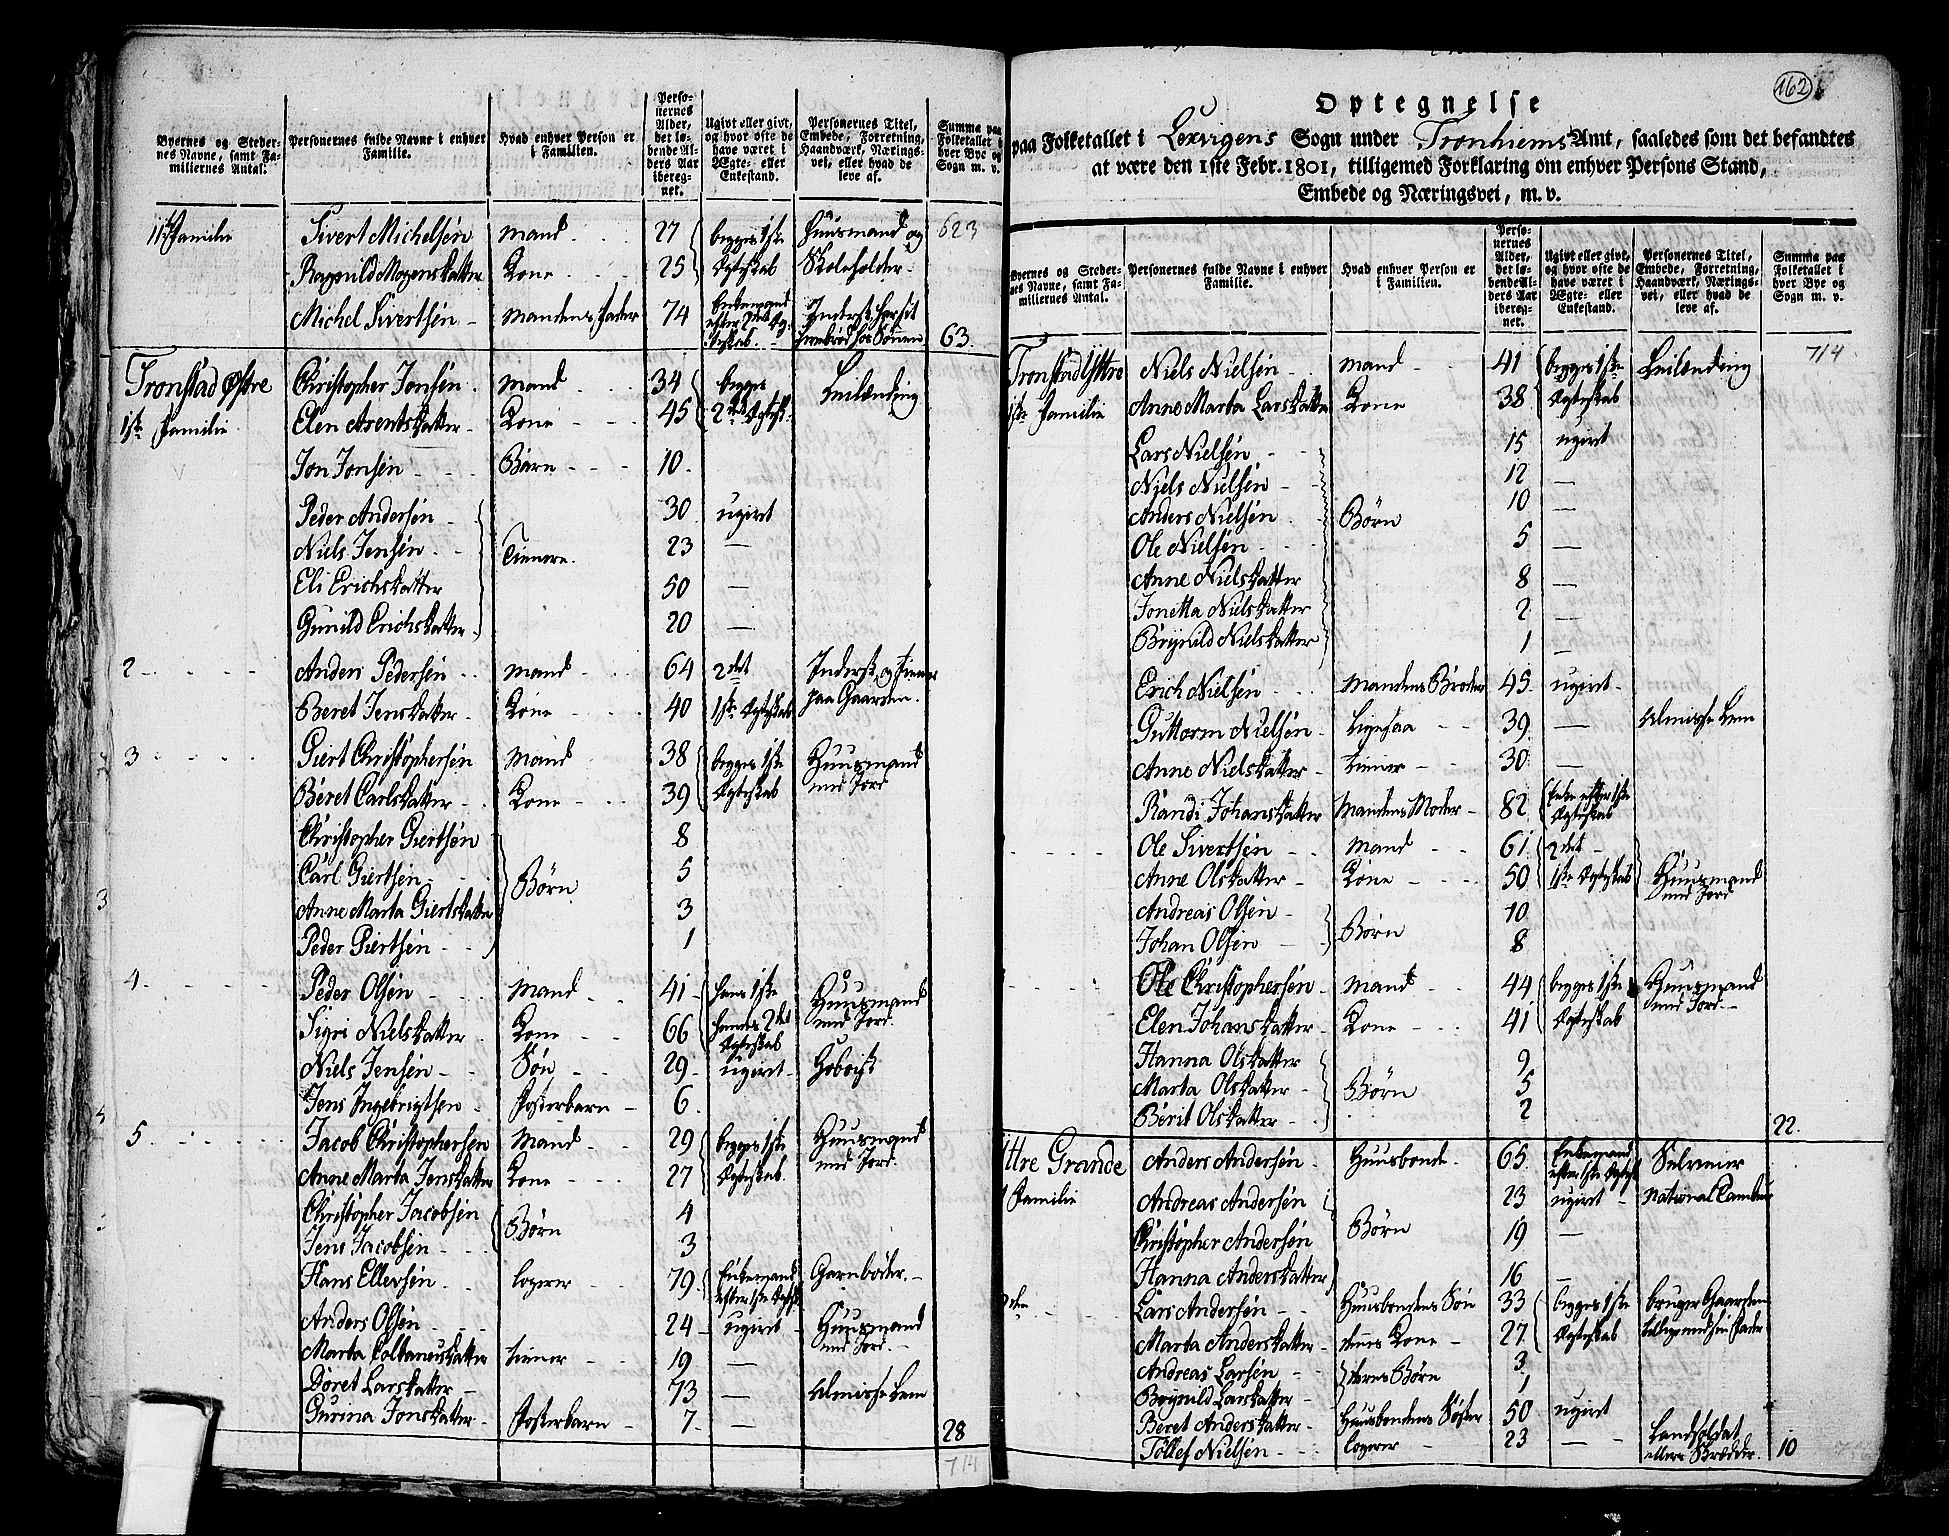 Byernes og Steder-
nes Navne, samt Fa-
miliernes Antal.
Personernes fulde Navne i enhver
Familie.
Hvad enhver Person er
i Familien.
Perso-
nernes
Alder,
det lø-
bende Al-
ders Aar
ibereg-
net.
Ugivt eller givt,
og hvor ofte de
have været i
Ægte- eller
Enkestand.
Personernes Titel,
Embede, Forretning,
Haandværk, Nærings-
vei, eller hvad de
leve af.
Summa paa
Folketallet i
hver Bye og
Sogn m. v.
11te Familie Sivert Michelsen mand 27 begges 1ste Huusmand og 623
Ragnild Mogensdatter Kone 25 Egteskab Skoleholder
Michel Sivertsen mandens Fader 74 Enkemand efter 2det Eg- teskab 63
Tronstad Østre Christopher Jonsen mand 34 begges Leilænding
1ste Familie Elen Arentsdatter Kone 45 2det Egtesk:
Jon Jonsen Barn 10
Peder Andersen 30 ugivt
Niels Jensen Tienere 23 —
Eli Erichsdatter 50 —
Gunild Erichsdatter 20 —
2 Anders Pedersen mand 64 2det Inderst og tiener
Beret Jensdatter Kone 40 1ste Egteskab paa Gaarden
3 Giert Christophersen mand 38 begges 1ste Huusmand
Beret Carlsdatter Kone 39 Egteskab med Jord
Christopher Giertsen 8
Carl Giertsen Børn 5
Anne Marta Giertsdatter 3
Peder Giertsen 1
4 Peder Olsen Mand 41 hans 1ste Huusmand
Sigri Nielsdatter Kone 66 hendes 2det Egteskab med Jord
Niels Jensen Søn 29 ugivt Hoboist
Jens Ingebrigtsen Fosterbarn 6
5 Jacob Christophersen Mand 29 begges 1ste Huusmand
Anne Marta Jensdatter Kone 27 Egteskab med Jord
Christopher Jacobsen Børn 4
Jens Jacobsen 3
Hans Ellevsen logerer 79 Enkemand efter 1ste Egtesk Garnbøder
Anders Olsen 24 ugivt Huusmand med Jord
Marta tiener 19 —
Doret Larsdatter 73 — Almisse Lem
Gurina Jonsdatter Fosterbarn 7 — 28
714
162
Optegnelse
paa Folketallet i Lexvigens Sogn under Tronhiems Amt, saaledes som det befandtes
at være den 1ste Febr. 1801, tilligemed Forklaring om enhver Persons Stand,
Embede og Næringsvei, m. v.
Byernes og Steder-
nes Navne, samt Fa-
miliernes Antal.
Personernes fulde Navne i enhver
Familie.
Hvad enhver Person er
i Familien.
Perso-
nernes
Alder,
det lø-
bende Al-
ders Aar
ibereg-
net.
Ugivt eller givt,
og hvor ofte de
have været i
Ægte- eller
Enkestand.
Personernes Titel,
Embede, Forretning,
Haandværk, Nærings-
vei, eller hvad de
leve af.
Summa paa
Folketallet i
hver Bye og
Sogn m. v.
Tronstad Yttre Niels Nielsen mand 41 begges 1ste Leilænding 714
1ste Familie Anne Marta Larsdatter Kone 38 Egteskab
Lars Nielsen 15 ugivt
Niels Nielsen 12 —
Anders Nielsen Børn 10 —
Ole Nielsen 5 —
Anne Nielsdatter 8 —
Jonetta Nielsdatter 2 —
Brynild Nielsdatter 1 —
Erich Nielsen Mandens Broder 45 ugivt
Guttorm Nielsen ligesaa 39 — Almisse Lem
Anne Nielsdatter tiener 30 —
Randi Johansdatter Mandens Moder 82 Enke efter 1ste Egteskab
Ole Sivertsen Mand 61 2det Huusmand
Anne Olsdatter Kone 50 1ste Egteskab med Jord
Andreas Olsen Børn 10
Johan Olsen 8
Ole Christophersen mand 44 begges 1ste Huusmand
Elen Johansdatter Kone 41 Egteskab med Jord
Hanna Olsdatter 9
Marta Olsdatter Børn 5
Berit Olsdatter 2 22
Yttre Grande Anders Andersen Huusbonde 65 Enkemand efter 1ste Egtesk Selveier
1 Familie Andreas Andersen 23 ugivt national
Christopher Andersen Børn 19 —
Hanna Andersdatter 16 —
Lars Andersen Huusbondens Søn 33 begges 1ste bruger Gaarden
Marta Andersdatter hans Kone 27 Egteskab tilligemed sin Fader
Andreas Larsen deres Børn 3
Brynild Larsdatter 1
Beret Andersdatter Huusbondens Søster 50 ugivt
Tollef Nielsen logerer 23 — Landsoldat ellers Skrædder 10